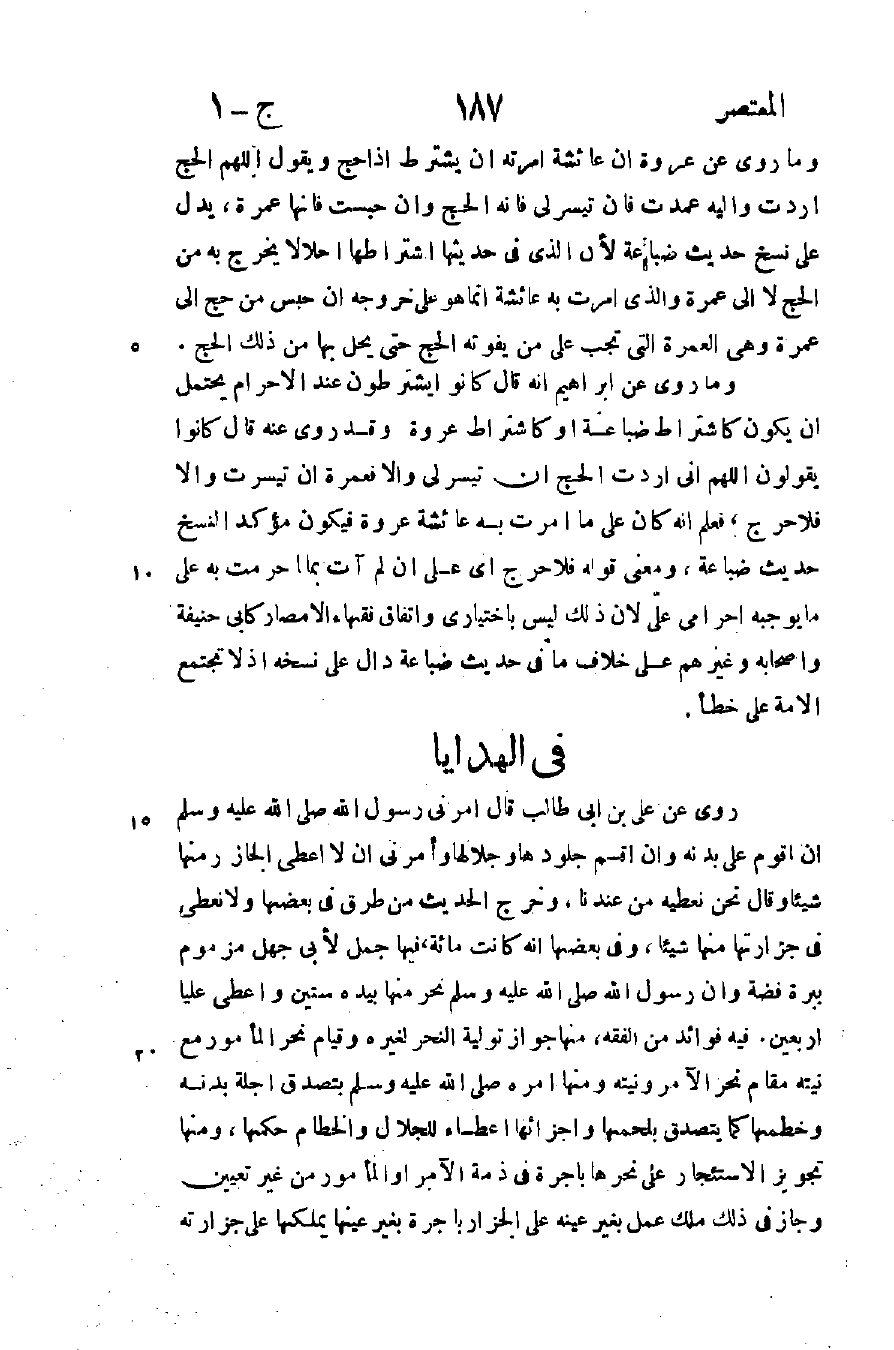 المعتصر ١٨٧ ج - ١
وما روى عن عروة ان عائشة امرته ان يشترط اذا حج ويقول اللهم الحج
اردت واليه عمدت فان تيسر لى فانه الحج وان حبست فانها عمرة، يدل
على نسخ حديث ضباعة لأن الذى فى حديثها اشتراطها احلالا يخرج به من
الحج لا الى عمرة والذى امرت به عائشة انما هو على خروجه ان حبس من حج الى
عمرة وهى العمرة التى تجب على من يفوته الحج حتى يحل بها من ذلك الحج . ٥
وما روى عن ابراهيم انه قال كانوا يشترطون عند الاحرام يحتمل
ان يكون كاشتراط ضباعة او كاشتراط عروة وقد روى عنه قال كانوا
يقولون اللهم انى اردت الحج ان تيسر لى والا فعمرة ان تيسرت والا
فلا حرج، فعلم انه كان على ما امرت به عائشة عروة فيكون مؤكد النسخ
حديث ضباعة، ومعنى قوله فلا حرج اى على ان لم آت بما احرمت به على ١٠
ما يوجبه احرامى علىّ لان ذلك ليس باختيارى واتفاق فقهاء الامصار كابى حنيفة
واصحابه وغيرهم على خلاف ما فى حديث ضباعة دال على نسخه اذ لا تجتمع
الامة على خطأ .
فى الهدايا
روى عن على بن ابى طالب قال امرنى رسول الله صلى الله عليه وسلم ١٥
ان اقوم على بدنه وان اقسم جلودها وجلالها وأمرنى ان لا اعطى الجازر منها
شيئا وقال نحن نعطيه من عندنا، وخرج الحديث من طرق فى بعضها ولا نعطى
فى جزارتها منها شيئا، وفى بعضها انه كانت مائة، فيها جمل لأبى جهل مزموم
ببرة فضة وان رسول الله صلى الله عليه وسلم نحر منها بيده ستين واعطى عليا
اربعين . فيه فوائد من الفقه، منها جواز تولية النحر لغيره وقيام نحر المأمور مع ٢٠
نيته مقام نحر الآمر ونيته ومنها امره صلى الله عليه وسلم بتصدق اجلة بدنه
وخطمها كما يتصدق بلحمها واجزائها اعطاء للجلال والخطام حكمها، ومنها
تجويز الاستئجار على نحرها باجرة فى ذمة الآمر او المأمور من غير تعيين
وجاز فى ذلك ملك عمل بغير عينه على الجزار باجرة بغير عينها يملكها على جزارته